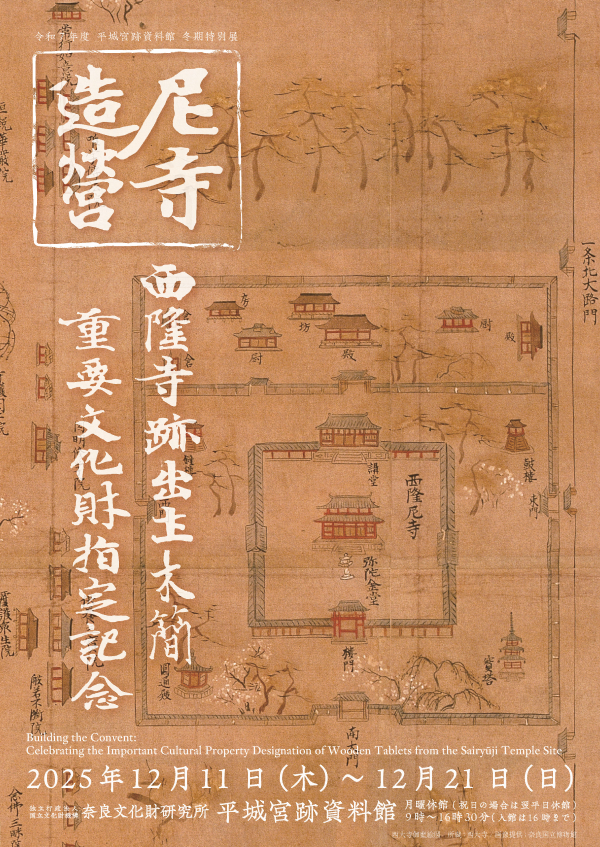 令和7年度 平城宮跡資料館 冬期特別展
尼寺
造營
西隆寺跡出土木簡
重要文化財指定記念
一条北大路門
房
坊
厨
殿
厨
殿
講堂
鼓樓
西隆尼寺
弥陀金堂
樓門
寳塔
圓通殿
南大門
東門
般若不断院
念佛三昧院
護衆生院
Building the Convent:
Celebrating the Important Cultural Property Designation of Wooden Tablets from the Sairyūji Temple Site
2025年12月11日(木)〜12月21日(日)
独立行政法人
国立文化財機構
奈良文化財研究所 平城宮跡資料館
月曜休館(祝日の場合は翌平日休館)
9時〜16時30分(入館は16時まで)